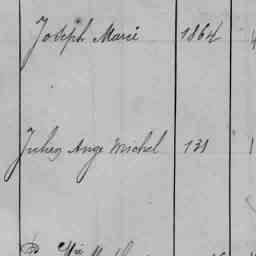 Joseph Marie 1864
Jules Ange Michel 131